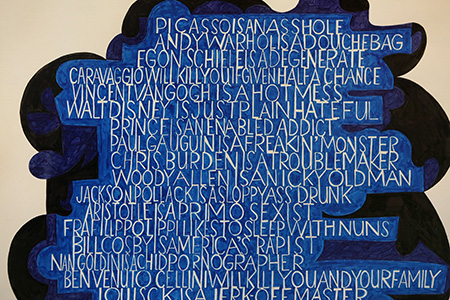 PICASSOISANASSHOLE
ANDYWARHOLISADOUCHEBAG
EGONSCHIELEISADEGENERATE
CARAVAGGIOWILLKILLYOUIFGIVENHALFACHANCE
VINCENTVANGOGH IS A HOT MESS
WALTDISNEYISJUSTPLAINHATEFUL
PRINCEISANENABLEDADDICT
PAULGAUGUINISAFREAKIN'MONSTER
CHRISBURDENISATROUBLEMAKER
WOODYALLENISANICKYOLDMAN
JACKSONPOLLACKISASLOPPYASSDRUNK
ARISTOTLEISAPRIMOSEXIST
FRAFILIPPOLIPPILIKESTOSLEEPWITHNUNS
BILLCOSBYISAMERICA'SRAPIST
NANGOLDINISACHILDPORNOGRAPHER
BENVENUTOCELLINIWILLKILLYOUANDYOURFAMILY
LOUISCKISAJERKOFFMASTER